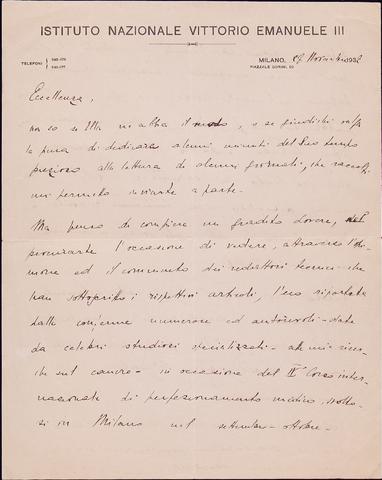 ISTITUTO NAZIONALE VITTORIO EMANUELE III
TELEFONI
MILANO, Novembre 1932
PIAZZALE GORINI, 22
Eccellenza,
non so se Ella ne abbia il modo, e se giudichi valga
la pena di dedicare alcuni minuti del Suo tempo
prezioso alla lettura di alcuni giornali, che raccolti
mi permetto inviarLe a parte.
Ma penso di compiere un gradito dovere, nel
procurarLe l'occasione di vedere, attraverso l'opi-
nione ed il commento dei redattori tecnici che
han sottoscritto i rispettivi articoli, l'eco riportata
dalle conferme numerose ed autorevoli - date
da celebri studiosi specializzati - alle mie ricer-
che sul cancro - in occasione del II° Corso inter-
nazionale di perfezionamento medico, svolto-
si in Milano nel settembre - ottobre -